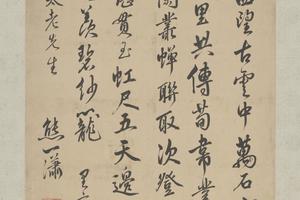 西望古雲中萬石
里共傳荀韋業
叢蟬聯取次登
貫玉虹尺五天邊
羨碧紗籠
太老先生
熊一瀟